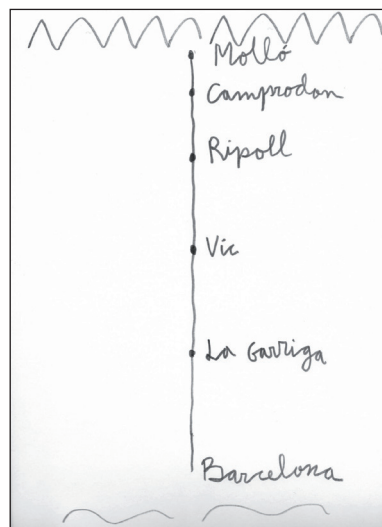 Molló
Camprodon
Ripoll
Vic
La Garriga
Barcelona